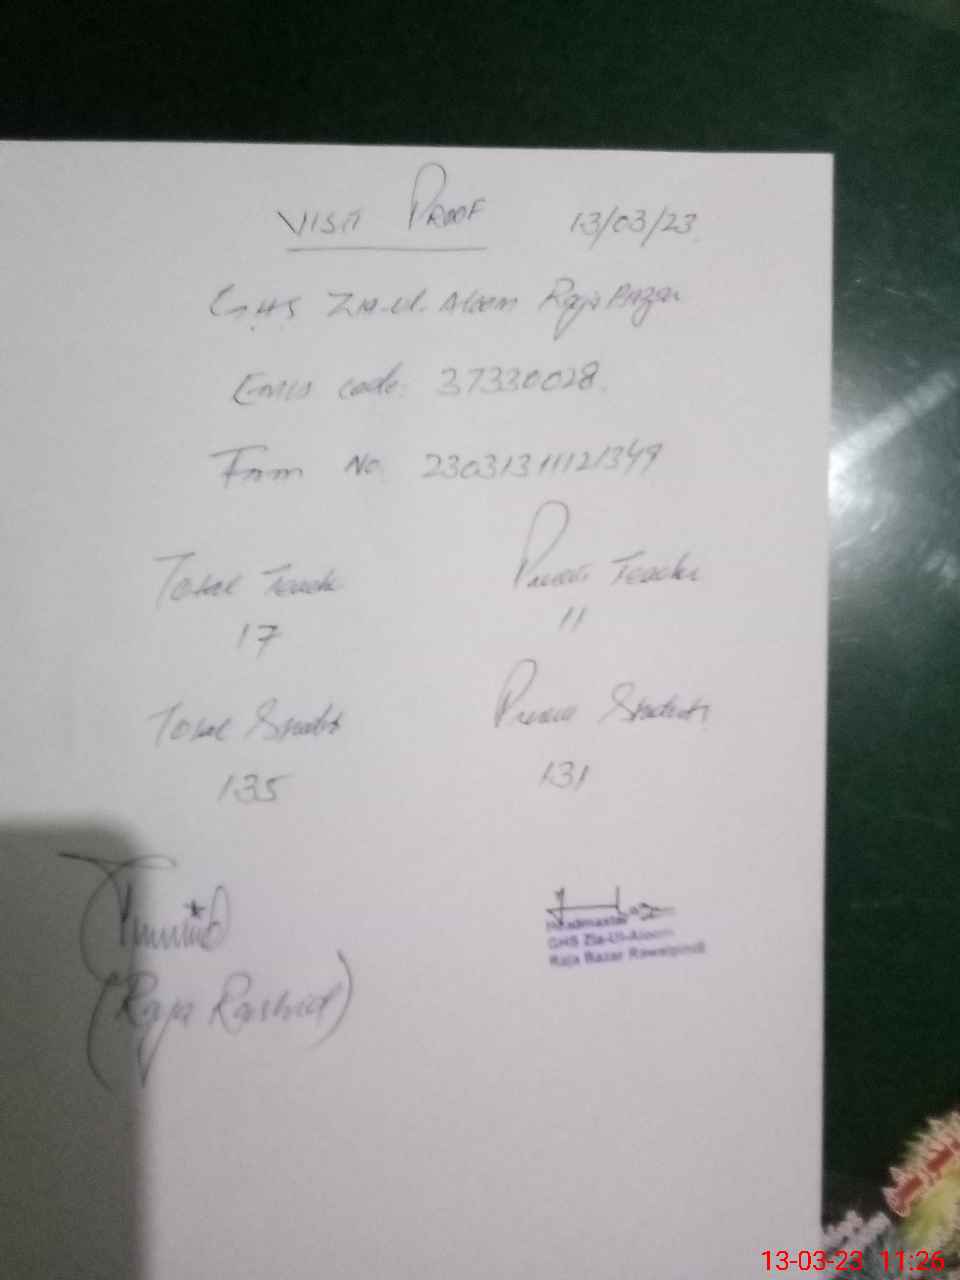 VISIT PROOF 13/03/23
GHS Zia-Ul-Aloom Raja Bazar
Emis code: 37330028.
Form No. 23031311121349
Total Teacher Present Teacher
17 11
Total Students Present Students
135 131
(Raja Rashid)
Headmaster
GHS Zia-Ul-Aloom
Raja Bazar Rawalpindi
13-03-23 11:26